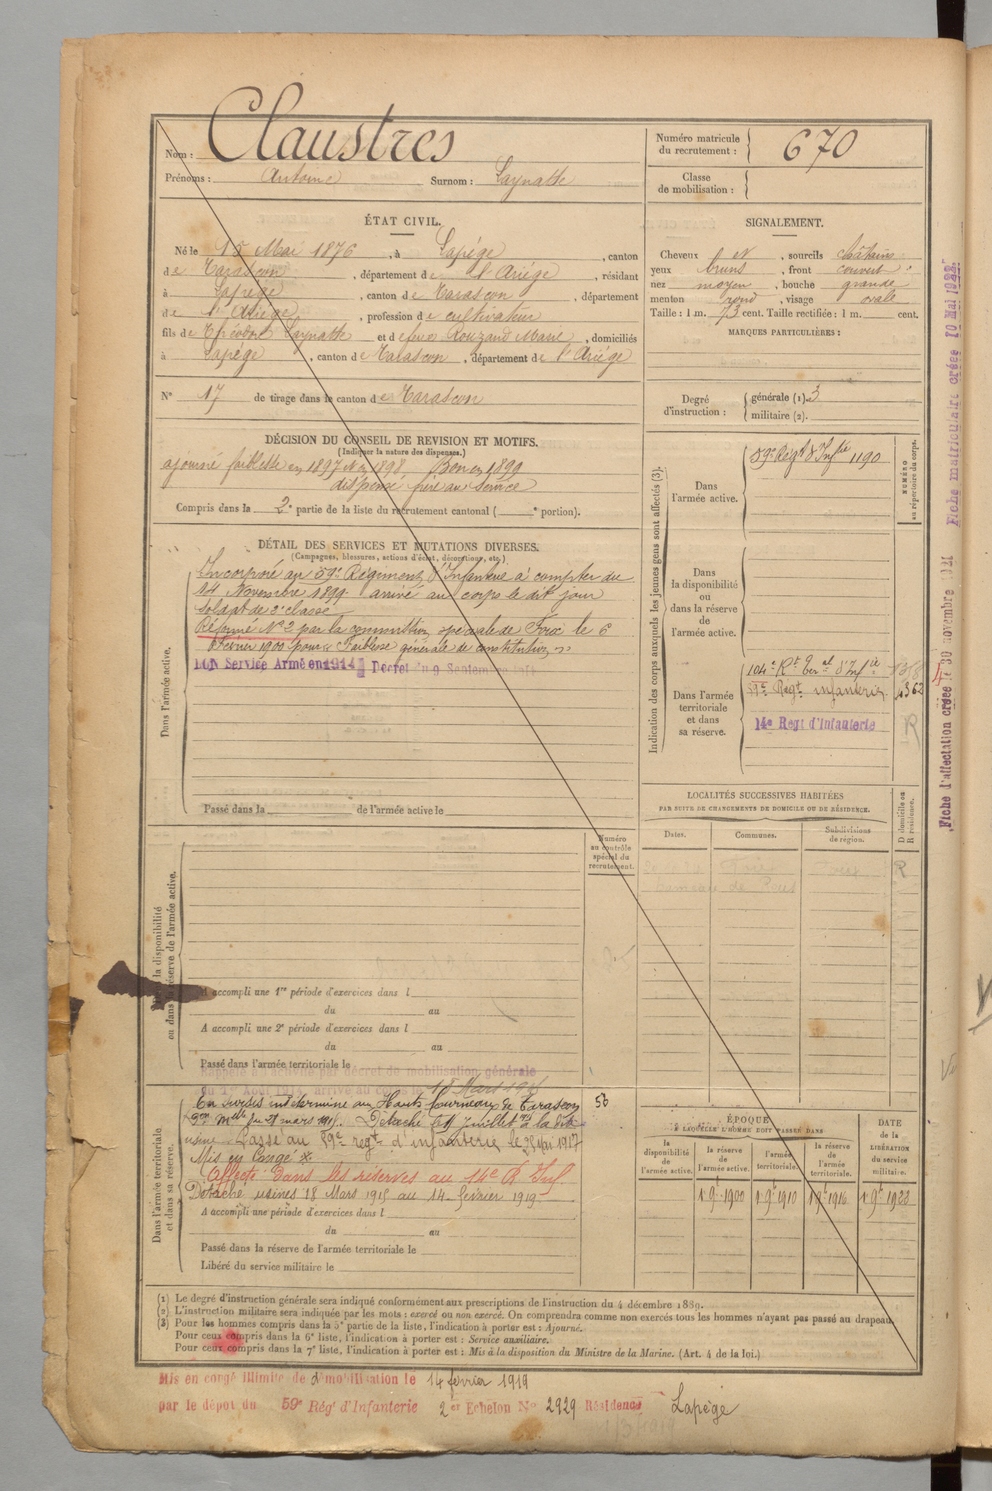 Nom : Claustres
Prénoms : Antoine Surnom : Laynatte
Numéro matricule du recrutement : 670
Classe de mobilisation :
ÉTAT CIVIL.
Né le 15 Mai 1876, à Lapège, canton
de Tarascon, département de l'Ariége, résidant
à Lapège, canton de Tarascon, département
de l'Ariége, profession de cultivateur
fils de Théodore Laynatte et de feue Rouzaud Marie, domiciliés
à Lapège, canton de Tarascon, département de l'Ariége
N° 17 de tirage dans le canton de Tarascon
SIGNALEMENT.
Cheveux et, sourcils châtains
yeux bruns, front couvert
nez moyen, bouche grande
menton rond, visage ovale
Taille : 1 m. 73 cent. Taille rectifiée : 1 m. cent.
MARQUES PARTICULIÈRES :
Degré d'instruction : générale (1). 3
militaire (2).
DÉCISION DU CONSEIL DE REVISION ET MOTIFS.
(Indiquer la nature des dispenses.)
ajourné faiblesse en 1897 et 1898 Bon en 1899
dispensé frère au service
Compris dans la 2e partie de la liste du recrutement cantonal ( e portion).
DÉTAIL DES SERVICES ET MUTATIONS DIVERSES.
(Campagnes, blessures, actions d'éclat, décorations, etc.)
Dans l'armée active.
Incorporé au 59e Régiment d'Infanterie à compter du
14 Novembre 1899 arrivé au corps le dit jour
Soldat de 2e classe
Réformé N° 2 par la commission spéciale de Foix le 6
Février 1900 pour « Faiblesse générale de constitution »
BON Service Armé en 1914 Décret du 9 Septembre 1914
Passé dans la de l'armée active le
Indication des corps auxquels les jeunes gens sont affectés (3).
NUMÉRO au répertoire du corps.
Dans l'armée active.
59e Régt d'Inftie 1190
Dans la disponibilité ou dans la réserve de l'armée active.
Dans l'armée territoriale et dans sa réserve.
104e Rt Teral d'Infie
59e Régt infanterie 4362
14e Regt d'Infanterie R
LOCALITÉS SUCCESSIVES HABITÉES
PAR SUITE DE CHANGEMENTS DE DOMICILE OU DE RÉSIDENCE.
Dates. Communes. Subdivisions de région. D domicile ou R résidence.
R
ou dans la réserve de l'armée active.
Numéro au contrôle spécial du recrutement.
A accompli une 1re période d'exercices dans l
du au
A accompli une 2e période d'exercices dans l
du au
Passé dans l'armée territoriale le
Rappelé à l'activité par décret de mobilisation générale
Dans l'armée territoriale et dans sa réserve.
En sursis indéterminé aux Hauts fourneaux de Tarascon 56
Passé au 59e regt d'infanterie le 28 Mai 1917
Mis en Congé
Affecté dans les réserves au 14e R Inf
Détaché usines 18 Mars 1915 au 14 février 1919
A accompli une période d'exercices dans l
du au
Passé dans la réserve de l'armée territoriale le
Libéré du service militaire le
ÉPOQUE
À LAQUELLE L'HOMME DOIT PASSER DANS
la disponibilité de l'armée active. la réserve de l'armée active. l'armée territoriale. la réserve de l'armée territoriale.
DATE de la LIBÉRATION du service militaire.
1 9e 1900 1 9e 1910 1 9e 1916 1 9e 1922
(1) Le degré d'instruction générale sera indiqué conformément aux prescriptions de l'instruction du 4 décembre 1889.
(2) L'instruction militaire sera indiquée par les mots : exercé ou non exercé. On comprendra comme non exercés tous les hommes n'ayant pas passé au drapeau.
(3) Pour les hommes compris dans la 5e partie de la liste, l'indication à porter est : Ajourné.
Pour ceux compris dans la 6e liste, l'indication à porter est : Service auxiliaire.
Pour ceux compris dans la 7e liste, l'indication à porter est : Mis à la disposition du Ministre de la Marine. (Art. 4 de la loi.)
Mis en congé illimité de démobilisation le 14 février 1919
par le dépôt du 59e Rég d'Infanterie 2er Echelon No 2929 Résidence Lapège
Fiche d'affectation créée le 30 novembre
Fiche matriculaire créée 10 Mai 1922